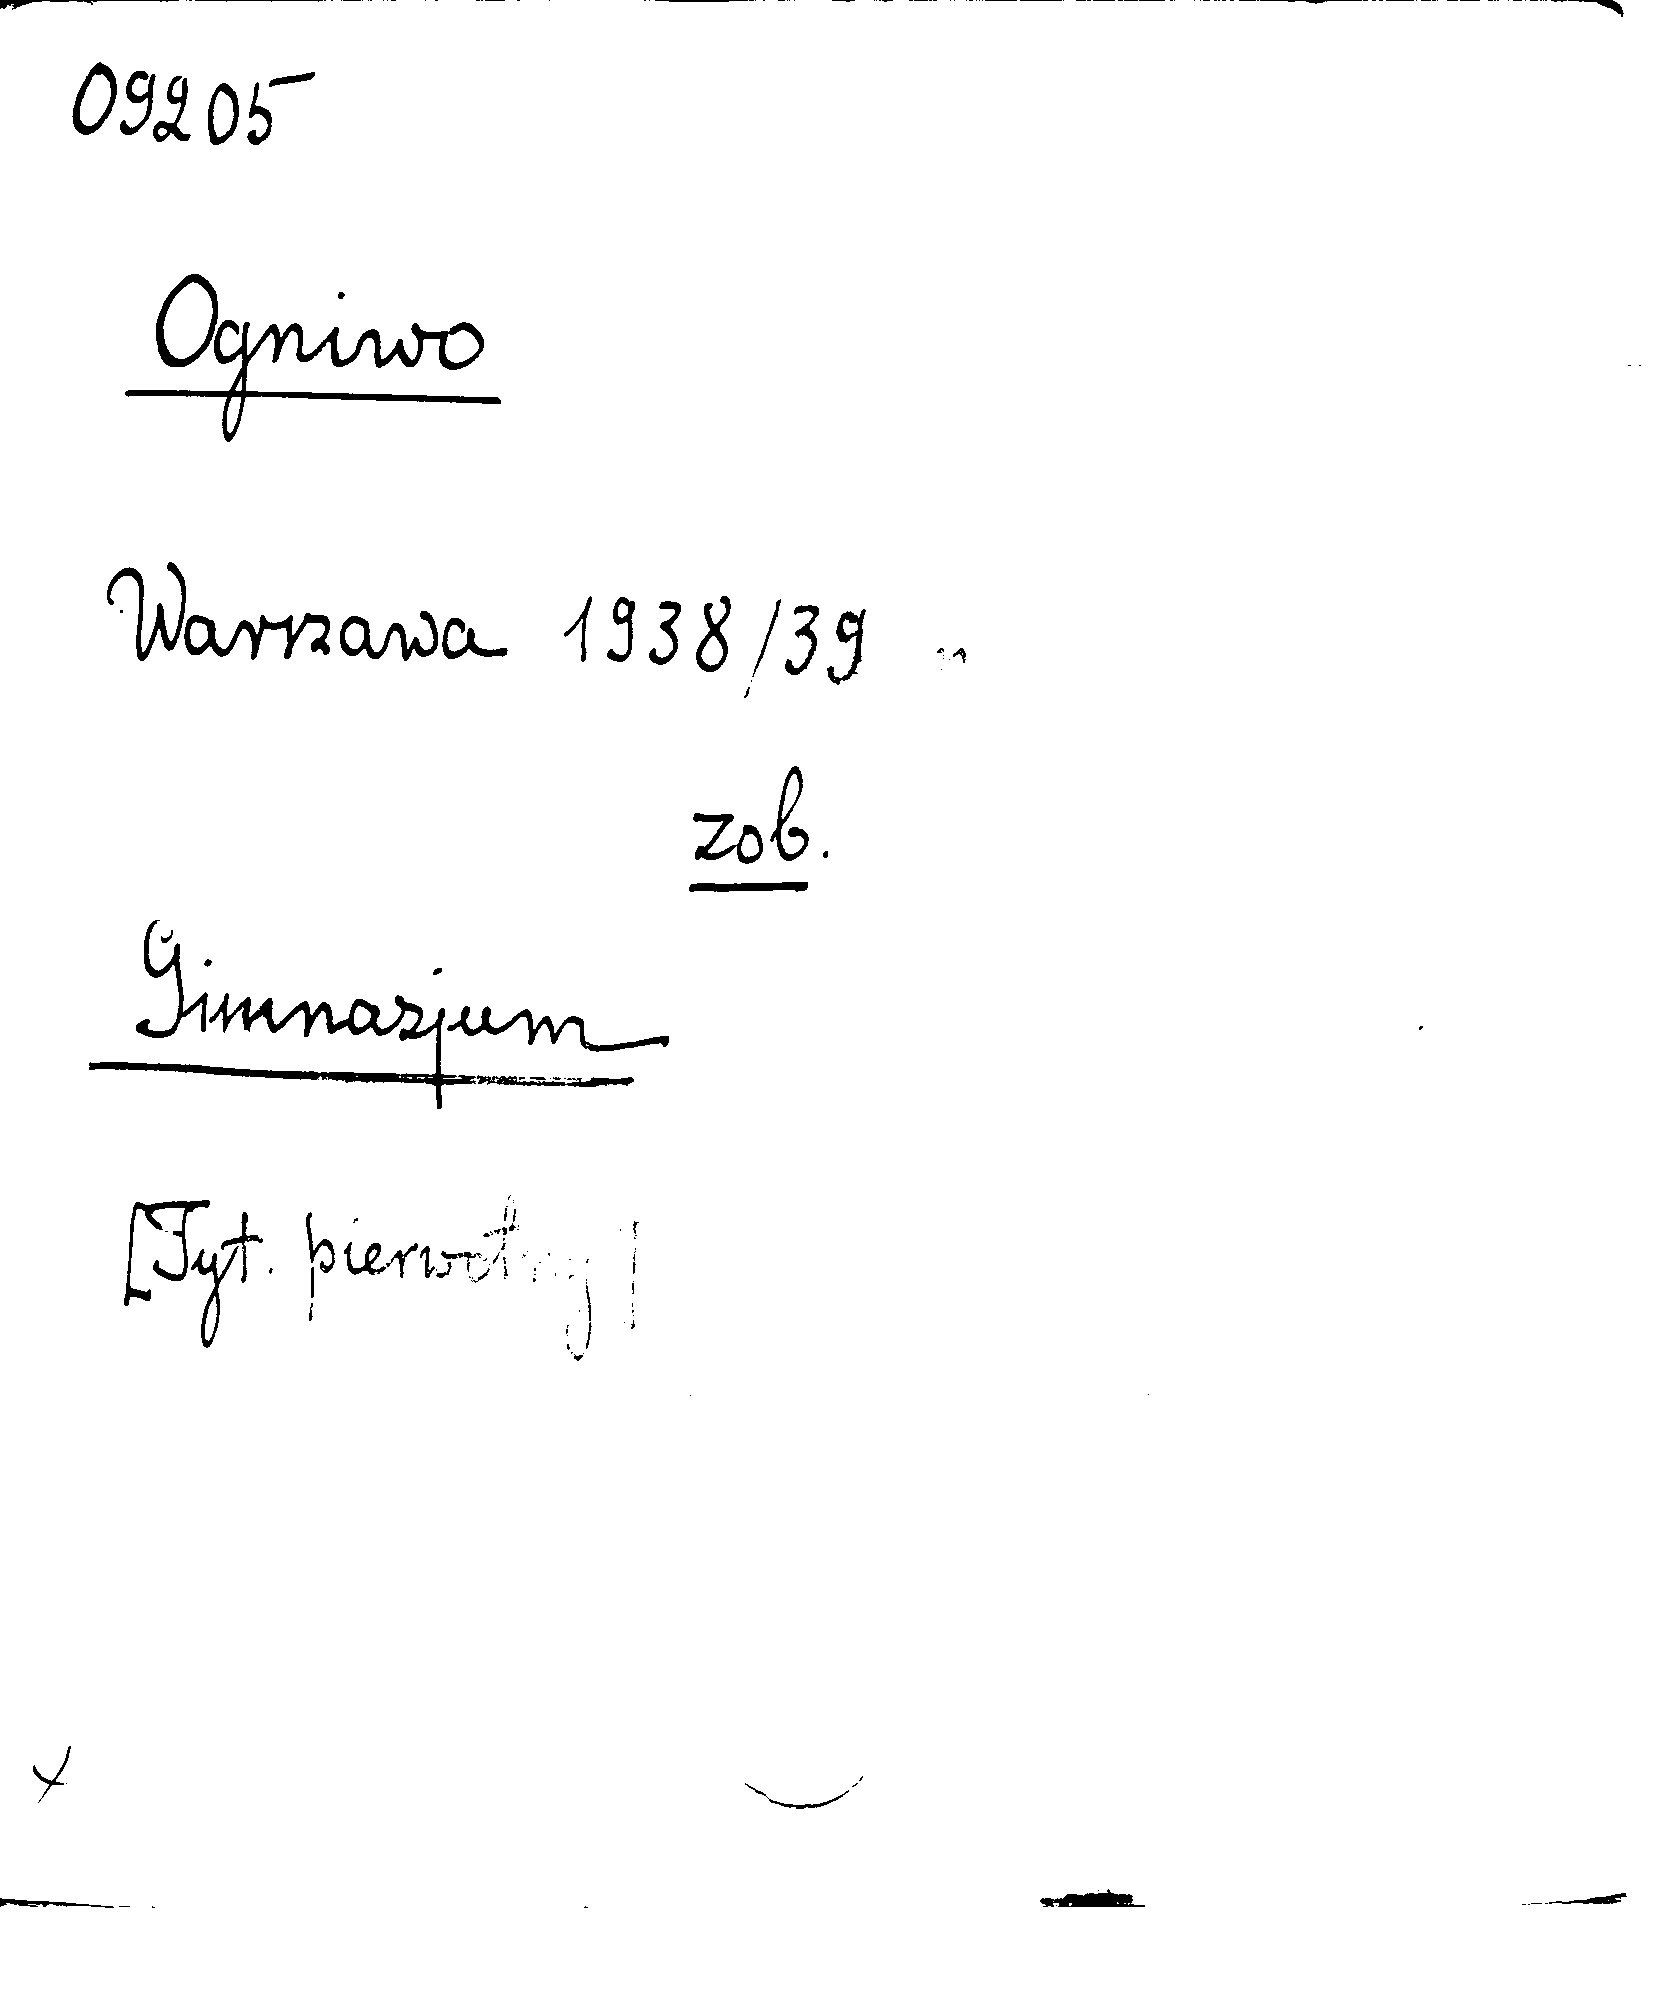 09205
Ogniwo
Warszawa 1938/39
zob.
Gimnazjum
[Tyt. pierwotny]